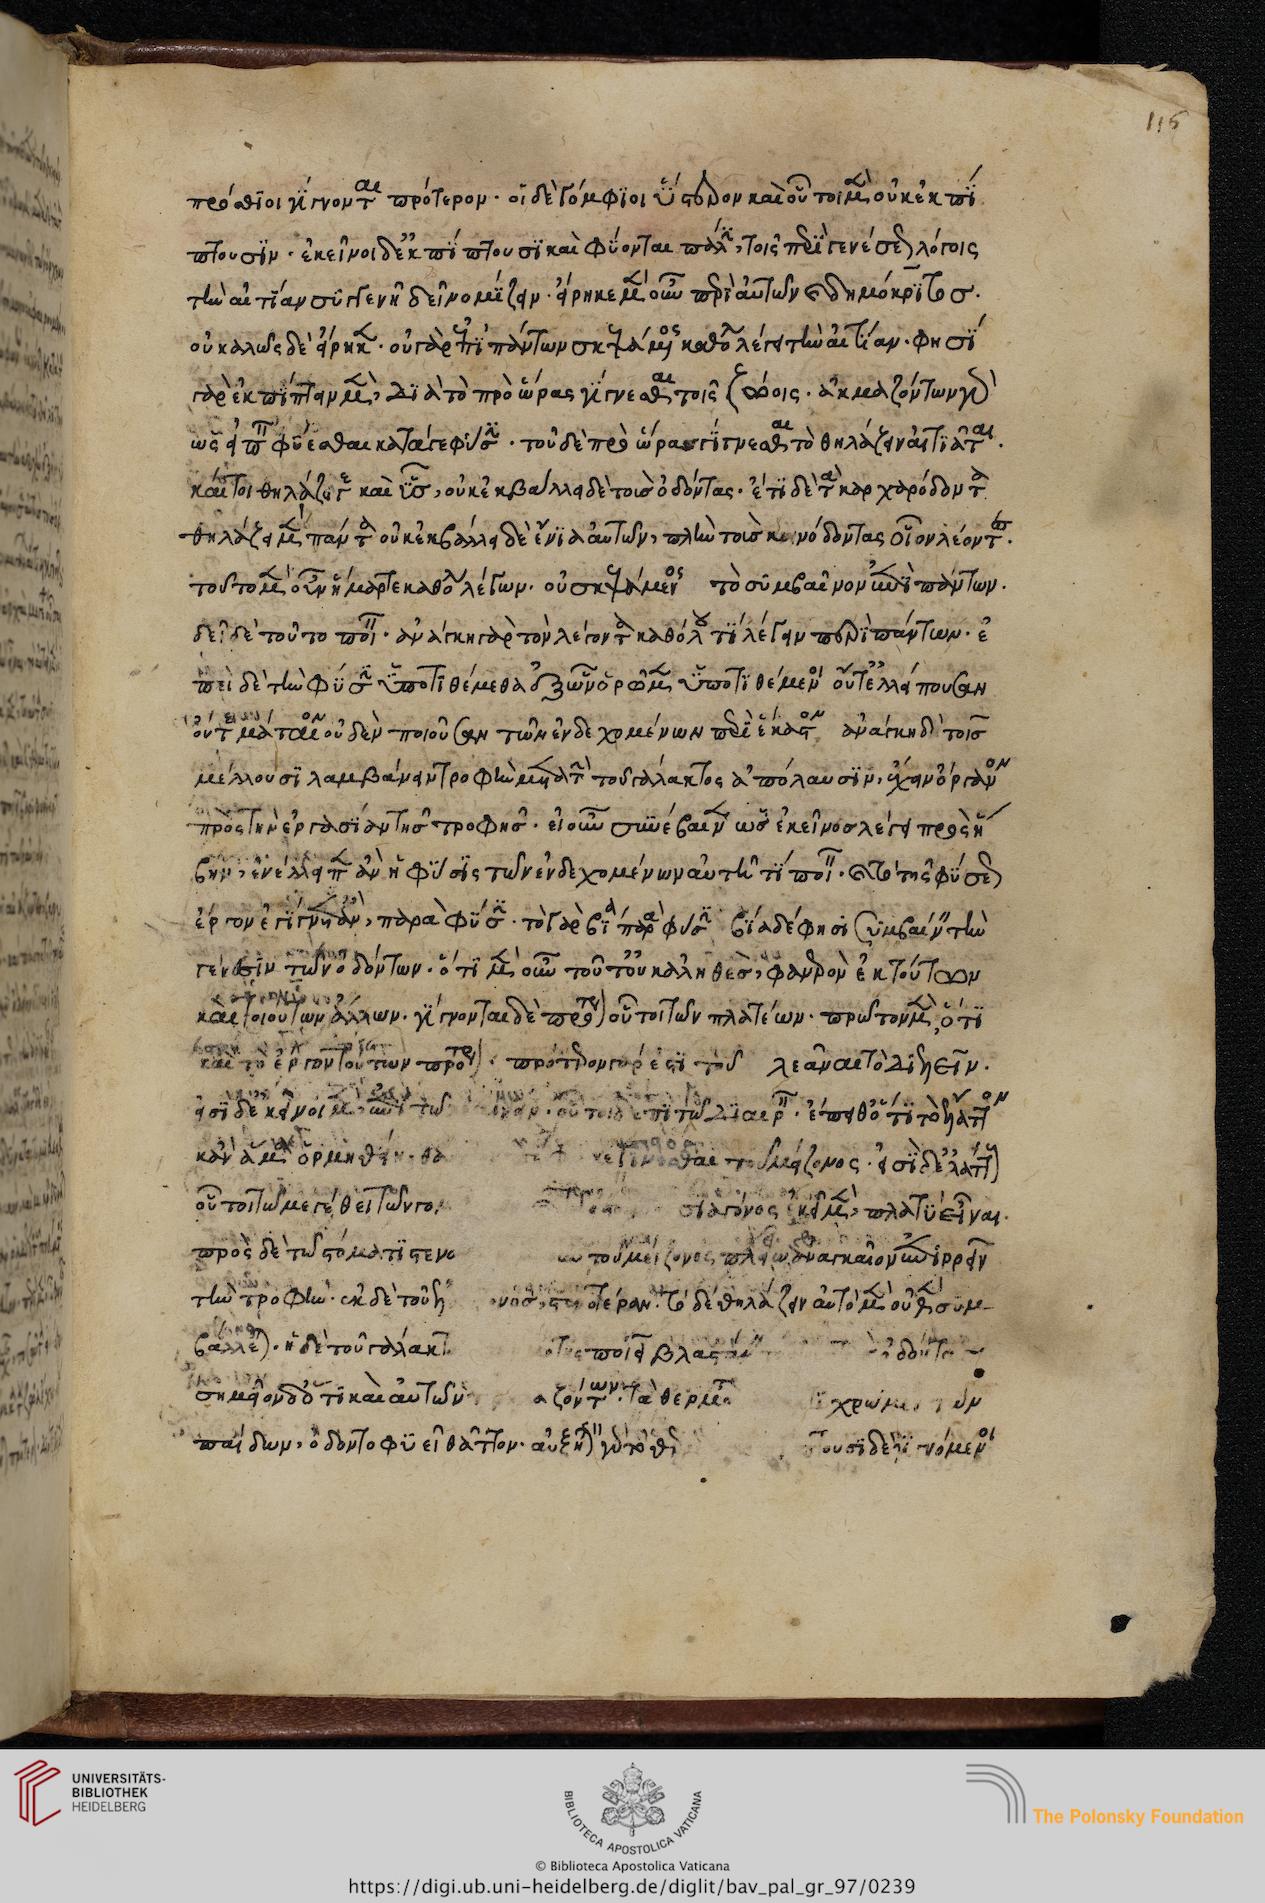 115
πρόσθϊοι γίγνονται πρότερον· οἱ δὲ γόμφϊοι ὕστερον καὶ οὗτοι μὲν οὐκ ἐκπί
πτουσϊν· ἐκεῖνοι δ' ἐκπίπτουσϊ καὶ φύονται πάλιν, τοῖς περὶ γενέσεως λόγοις
τὴν αἰτίαν συγγενῆ δεῖ νομίζειν· εἴρηκε μὲν οὖν περὶ αὐτῶν καὶ δημόκρϊτος·
οὐ καλῶς δὲ εἴρηκεν· οὐ γὰρ ἐπὶ πάντων σκεψάμενος καθόλου λέγει τὴν αἰτίαν· φησὶ
γὰρ ἐκπίπτειν μὲν, διὰ τὸ πρὸ ὥρας γίγνεσθαι τοῖς ζώοις· ἀκμαζόντων γὰρ
ὡς εἰπεῖν φύεσθαι κατά γε φύσιν· τοῦ δὲ πρὸ ὥρας γίγνεσθαι τὸ θηλάζειν αἰτιᾶται·
καίτοι θηλάζει γε καὶ ὗς, οὐκ ἐκβάλλει δὲ τοὺς ὀδόντας· ἔτι δὲ τὰ καρχαρόδοντα
θηλάζει μὲν πάντα οὐκ ἐκβάλλει δὲ ἔνια αὐτῶν, πλὴν τοὺς κυνόδοντας οἷον λέοντες·
τοῦτο μὲν οὖν ἥμαρτε καθόλου λέγων· οὐ σκεψάμενος τὸ συμβαῖνον ἐπὶ πάντων·
δεῖ δὲ τοῦτο ποιεῖν· ἀνάγκη γὰρ τὸν λέγοντα καθόλου τι λέγειν περὶ πάντων· ἐ
πεὶ δὲ τὴν φύσιν ὑποτιθέμεθα ἐξ ὧν ὁρῶμεν ὑποτιθέμενοι οὔτ' ἐλλείπουσαν
οὔτε μάταιον οὐδὲν ποιοῦσαν τῶν ἐνδεχομένων περὶ ἕκαστον ἀνάγκη δὲ τοῖς
μέλλουσι λαμβάνειν τροφὴν μετὰ τὴν τοῦ γάλακτος ἀπόλαυσιν, ἔχειν ὄργανον
πρὸς τὴν ἐργασίαν τῆς τροφῆς· εἰ οὖν συνέβαινεν ὡς ἐκεῖνος λέγει πρὸς ἥ
βην, ἐνέλειπεν ἂν ἡ φύσις τῶν ἐνδεχομένων αὐτῇ τι ποιεῖν· καὶ τὸ τῆς φύσεως
ἔργον ἐγίγνετ' ἂν, παρὰ φύσιν· τὸ γὰρ βίᾳ παρὰ φύσιν βίᾳ δέ φησι συμβαίνειν τὴν
γένεσιν τῶν ὀδόντων· ὅτι μὲν οὖν τοῦτ' οὐκ ἀληθὲς, φανερὸν ἐκ τούτων
καὶ τοιούτων ἄλλων· γίγνονται δὲ πρότερον οὗτοι τῶν πλατέων· πρῶτον μὲν, ὅτι
καὶ τὸ ἔργον τούτων πρότερον· πρότερον γάρ ἐστι τοῦ λεᾶναι τὸ διελεῖν·
εἰσὶ δ' ἐκεῖνοι μὲν, ἐπὶ τῷ· οὗτοι δ' ἐπὶ τῷ διαιρεῖν· ἔπειθ' ὅτι τὸ ἔλαττον
κἂν ἅμα ὁρμηθῇ· θᾶ γίγνεσθαι τοῦ μείζονος· εἰσὶ δ' ἐλάττους
οὗτοι τῷ μεγέθει τῶν γο σιαγόνος ἐκεῖ μὲν, πλατὺ εἶναι·
πρὸς δὲ τῷ στόματι στενο τοῦ μείζονος πλείω ἀναγκαῖον ἐπιρρεῖν
τὴν τροφὴν· ἐκ δὲ τοῦ στενωτέραν· τὸ δὲ θηλάζειν αὐτὸ μὲν οὐδὲν συμ-
βάλλεται· ἡ δὲ τοῦ γάλακτ ποιεῖ βλαστάνειν ὀδόντας
σημεῖον δ' ὅτι καὶ αὐτῶν αζόντων· τὰ θερμο χρώμενα τῶν
παίδων, ὀδοντοφυεῖ θᾶττον· αὐξητικὸν γὰρ τὸ θερ πτουσι δὲ γινόμενοι
UNIVERSITÄTS-
BIBLIOTHEK
HEIDELBERG
BIBLIOTECA APOSTOLICA VATICANA
The Polonsky Foundation
© Biblioteca Apostolica Vaticana
https://digi.ub.uni-heidelberg.de/diglit/bav_pal_gr_97/0239